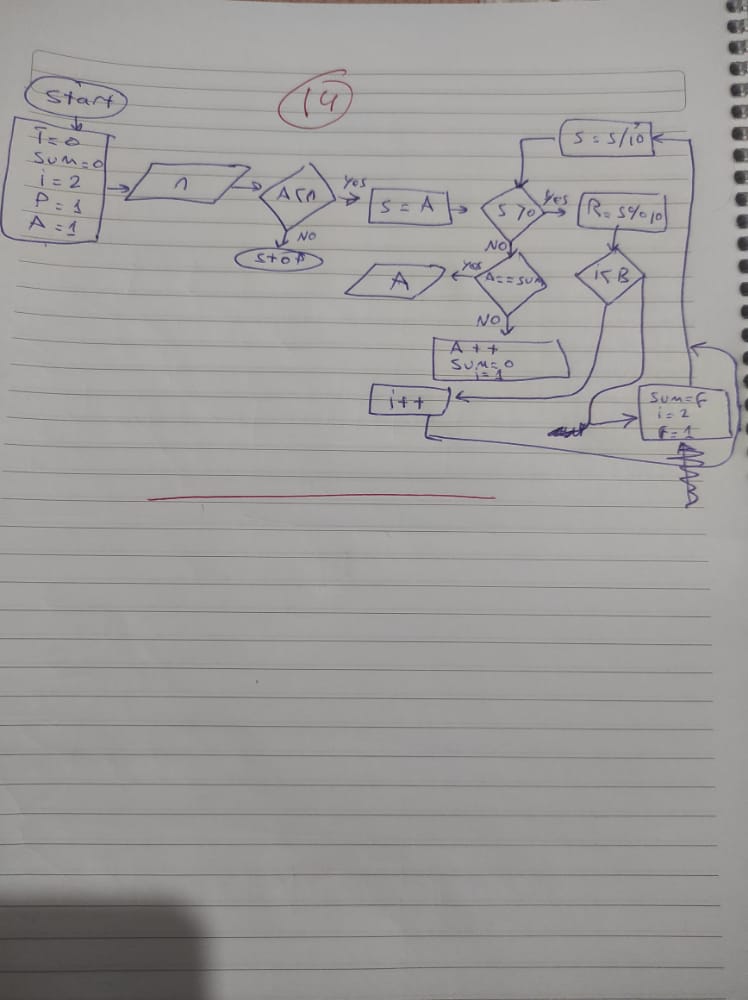 14
Start
T=0
SUM=0
i=2
P=1
A=1
n
A<n
Yes
NO
Stop
S=A
S>0
Yes
NO
R=S%10
S=S/10
A==SUM
Yes
A
NO
A++
SUM=0
i=1
i++
SUM=F
i=2
F=1